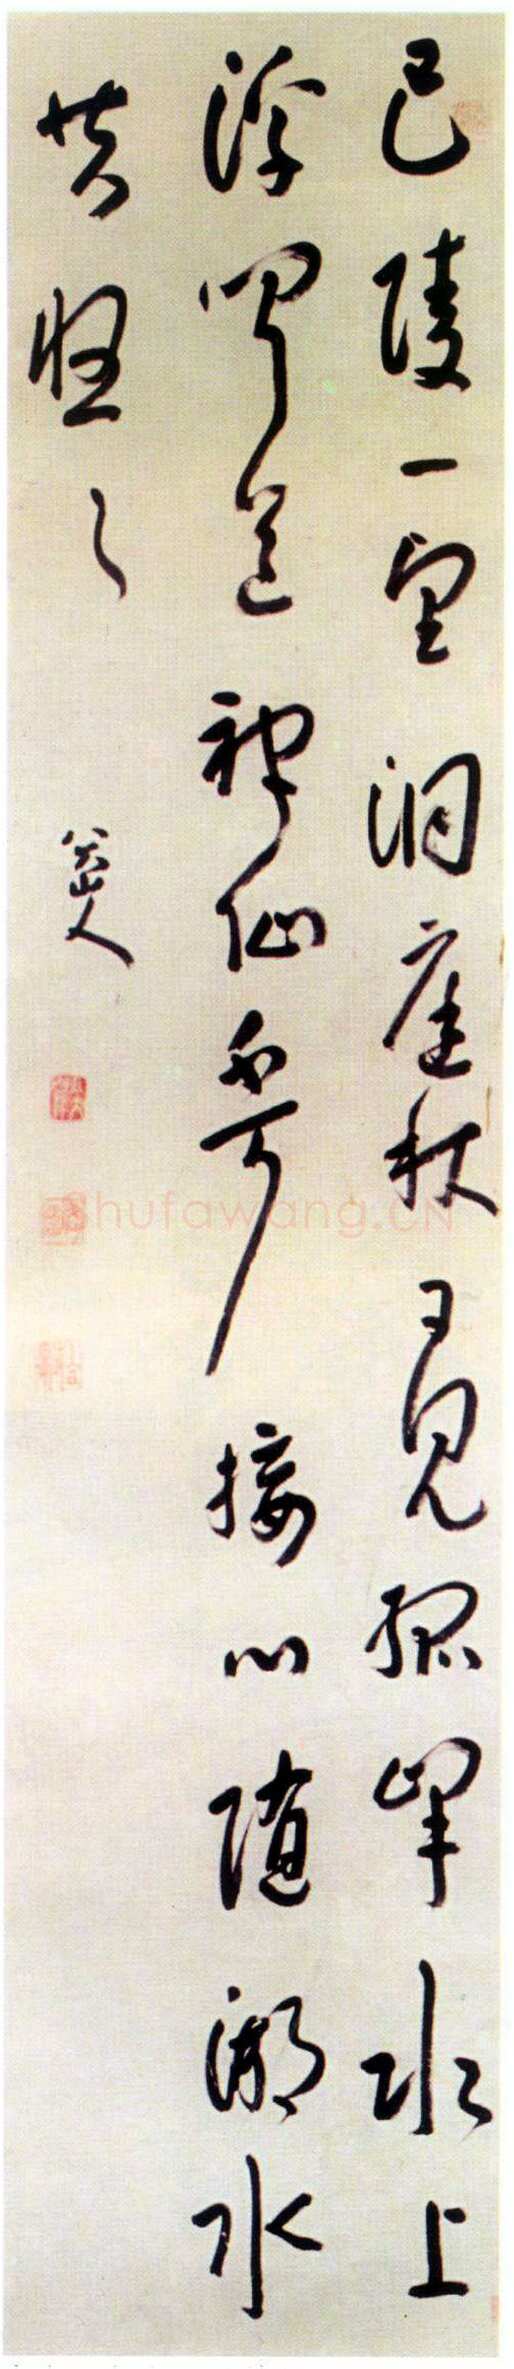 巴陵一望洞庭秋日見孤峯水上
浮聞道神仙不可接心隨湖水
共悠々
八大山人
shufawang.CN